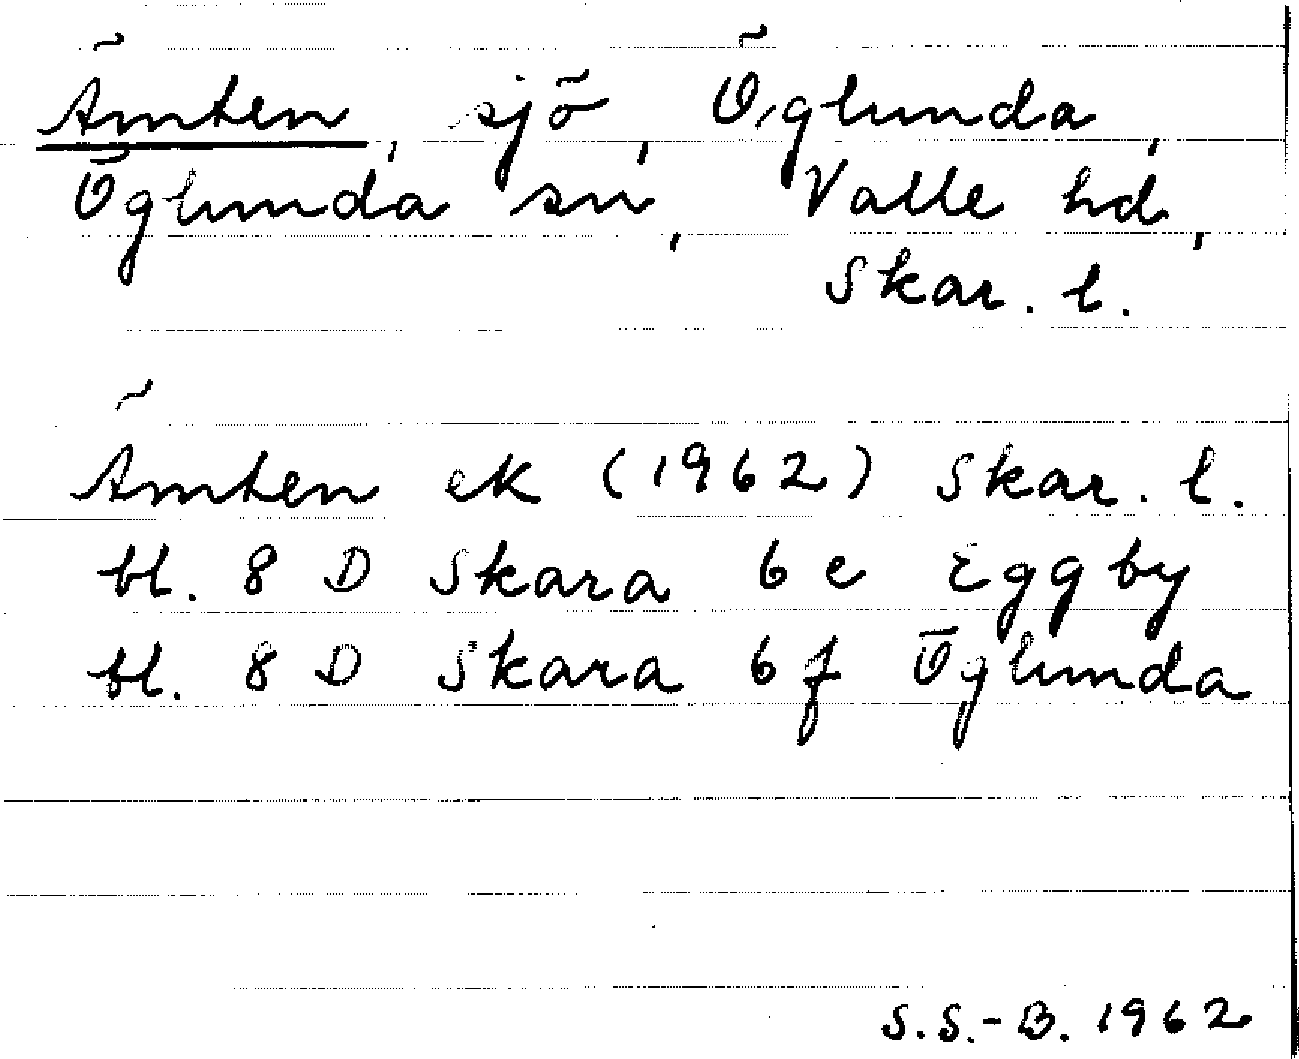 Ämten, sjö, Öglunda,
Öglunda sn, Valle hd,
Skar. l.
Ämten ek (1962) Skar. l.
bl. 8 D Skara 6 e Eggby
bl. 8 D Skara 6 f Öglunda
S.S.-B. 1962